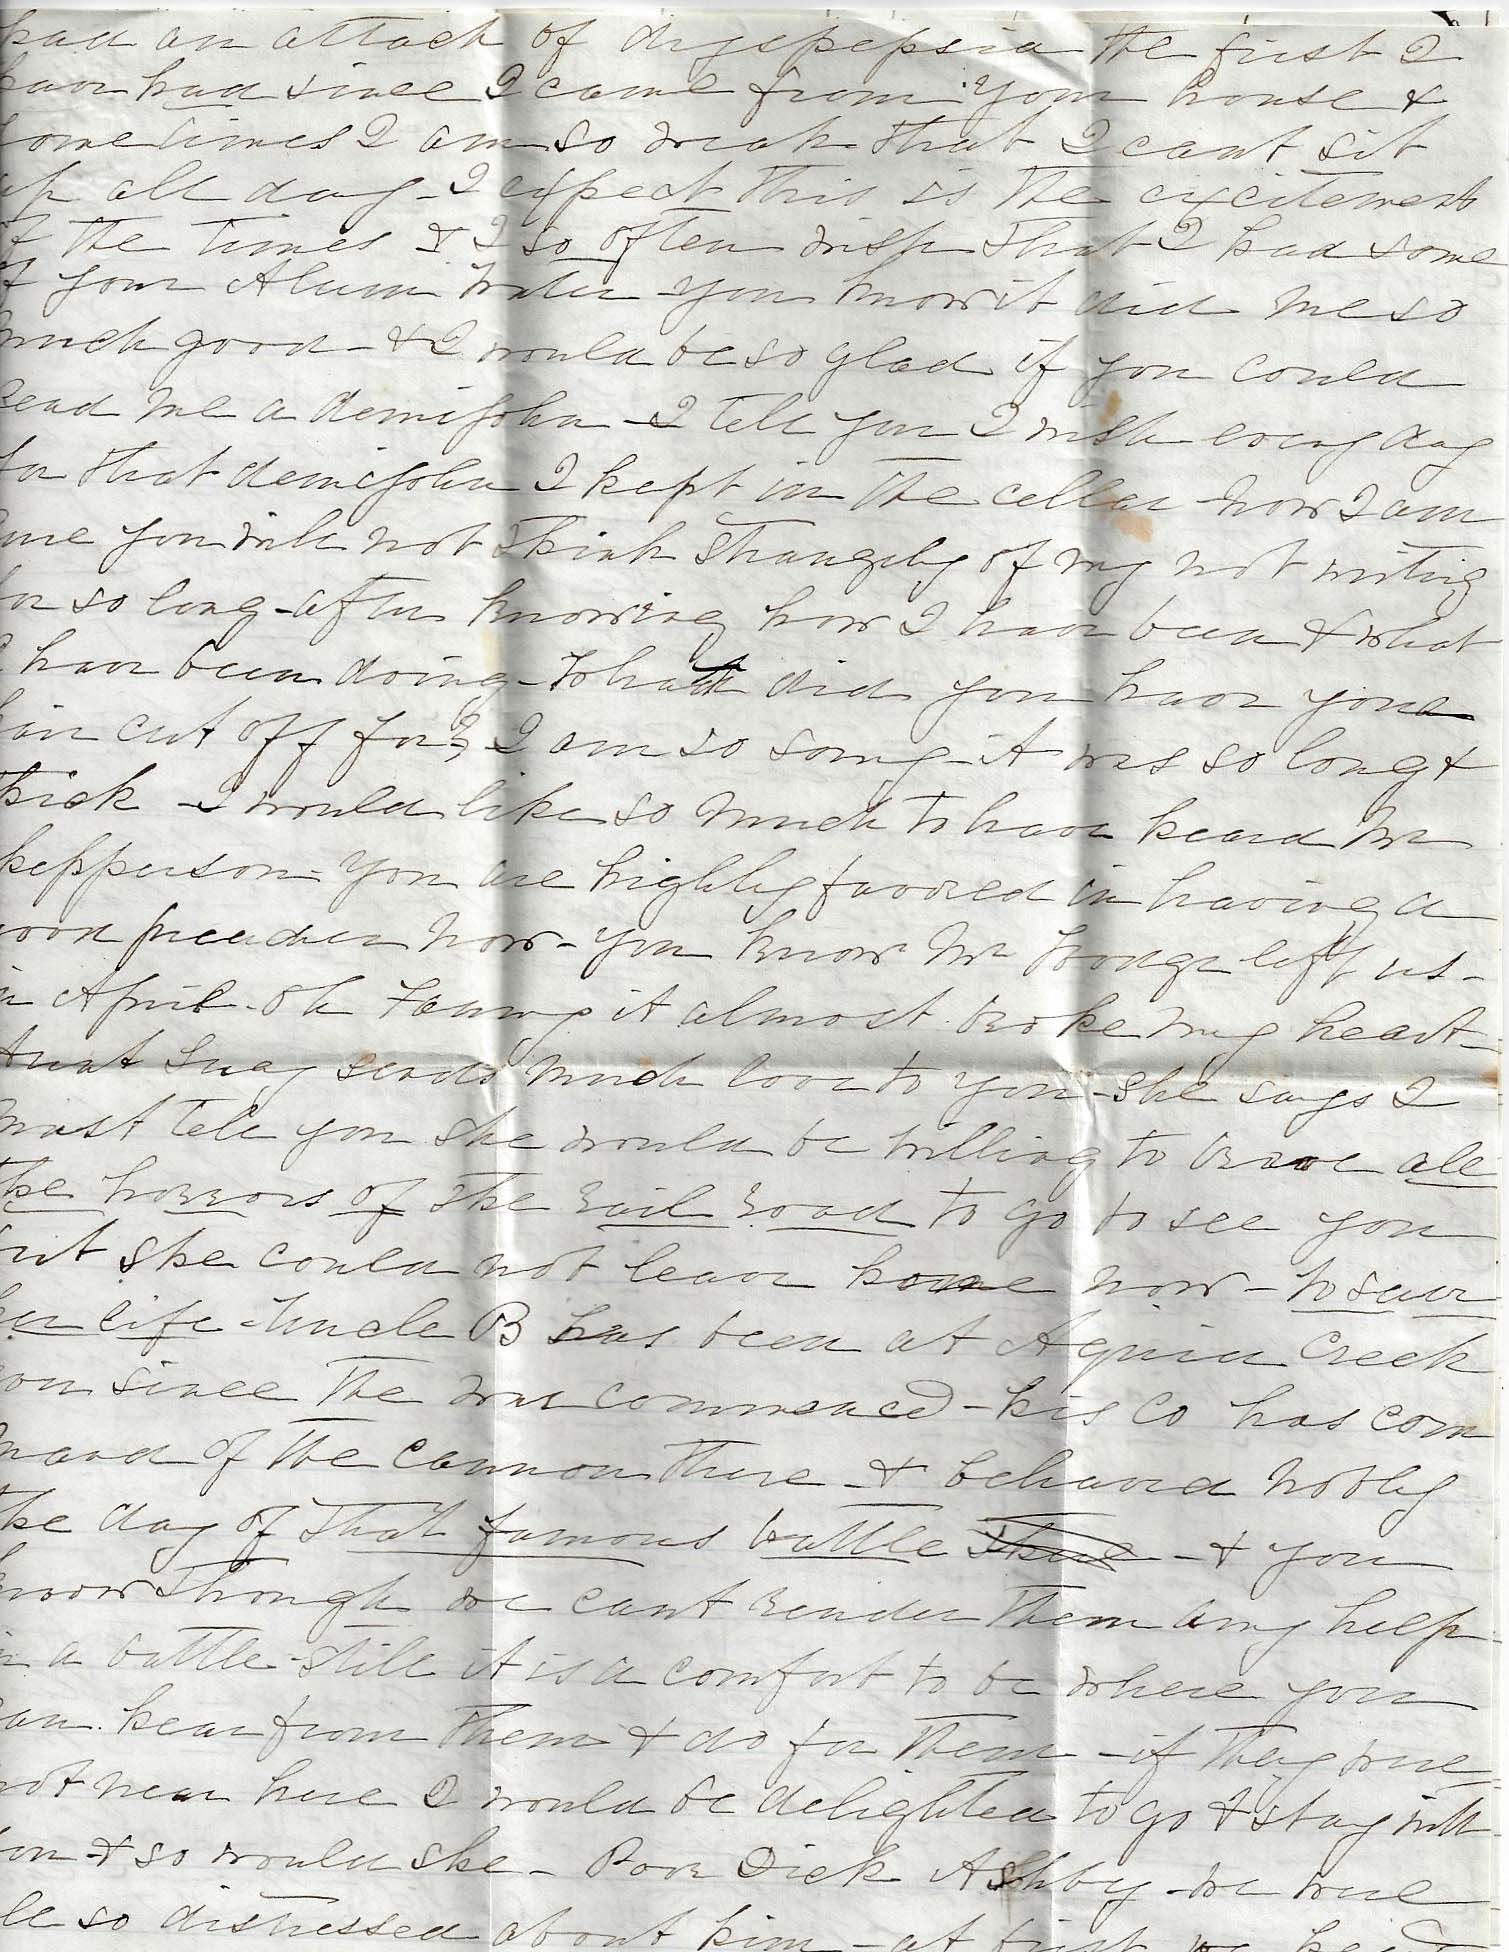 had an attack of dyspepsia the first I
have had since I came from your house &
some times I am so weak that I cant sit
up all day - I expect this is the excitement
of the times & I so often wish that I had some
of your Alum Water - you know it did me so
much good - & I would be so glad if you could
send me a demijohn - I tell you I wish every day
for that demijohn I kept in the cellar - now I am
sure you will not think strangely of my not writing
for so long - after knowing how I have been & what
I have been doing - What did you have your
hair cut off for? I am so sorry - it was so long &
thick - I would like so much to have heard Mr
hepperson - you are highly favored in having a
good preacher now - you know Mr Hoge left us -
in April - oh Fanny it almost broke my heart -
Aunt Lucy sends much love to you - she says I
must tell you she would be willing to brave all
the horrors of the rail road to go to see you
but she could not leave home now - to save
her life - Uncle B has been at Aquia Creek
ever since the war commenced - his Co has com
mand of the cannon there - & behaved nobly
the day of that famous battle there - & you
know though we cant render them any help -
in a battle - still it is a comfort to be where you
can hear from them & do for them - if they were
not near here I would be delighted to go & stay with
you & so would she - Poor Dick Ashby - we were
all so distressed about him - at first we